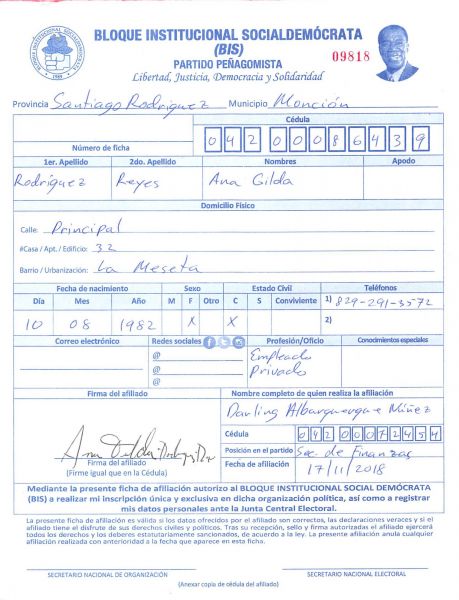 BLOQUE INSTITUCIONAL SOCIALDEMÓCRATA
(BIS)
PARTIDO PEÑAGOMISTA
Libertad, Justicia, Democracia y Solidaridad
09818
BLOQUE INSTITUCIONAL SOCIALDEMOCRATA
1989
Provincia Santiago Rodriguez Municipio Monción
Cédula
Número de ficha 04200086439
1er. Apellido 2do. Apellido Nombres Apodo
Rodríguez Reyes Ana Gilda
Domicilio Físico
Calle: Principal
#Casa / Apt. / Edificio: 32
Barrio / Urbanización: La Meseta
Fecha de nacimiento Sexo Estado Civil Teléfonos
Día Mes Año M F Otro C S Conviviente 1) 829-291-3572
10 08 1982 X X 2)
Correo electrónico Redes sociales Profesión/Oficio Conocimientos especiales
@ Empleado
@ Privado
@
Firma del afiliado Nombre completo de quien realiza la afiliación
Darling Alburquerque Núñez
Cédula 04200072454
Posición en el partido Sec. de Finanzas
Firma del afiliado
(Firme igual que en la Cédula)
Fecha de afiliación 17/11/2018
Mediante la presente ficha de afiliación autorizo al BLOQUE INSTITUCIONAL SOCIAL DEMÓCRATA
(BIS) a realizar mi inscripción única y exclusiva en dicha organización política, así como a registrar
mis datos personales ante la Junta Central Electoral.
La presente ficha de afiliación es válida si los datos ofrecidos por el afiliado son correctos, las declaraciones veraces y si el
afiliado tiene el disfrute de sus derechos civiles y políticos. Tras su recepción, sello y firma autorizadas el afiliado ejercerá
todos los derechos y los deberes estatutariamente sancionados, de acuerdo a la ley. La presente afiliación anula cualquier
afiliación realizada con anterioridad a la fecha que aparece en esta ficha.
SECRETARIO NACIONAL DE ORGANIZACIÓN SECRETARIO NACIONAL ELECTORAL
(Anexar copia de cédula del afiliado)